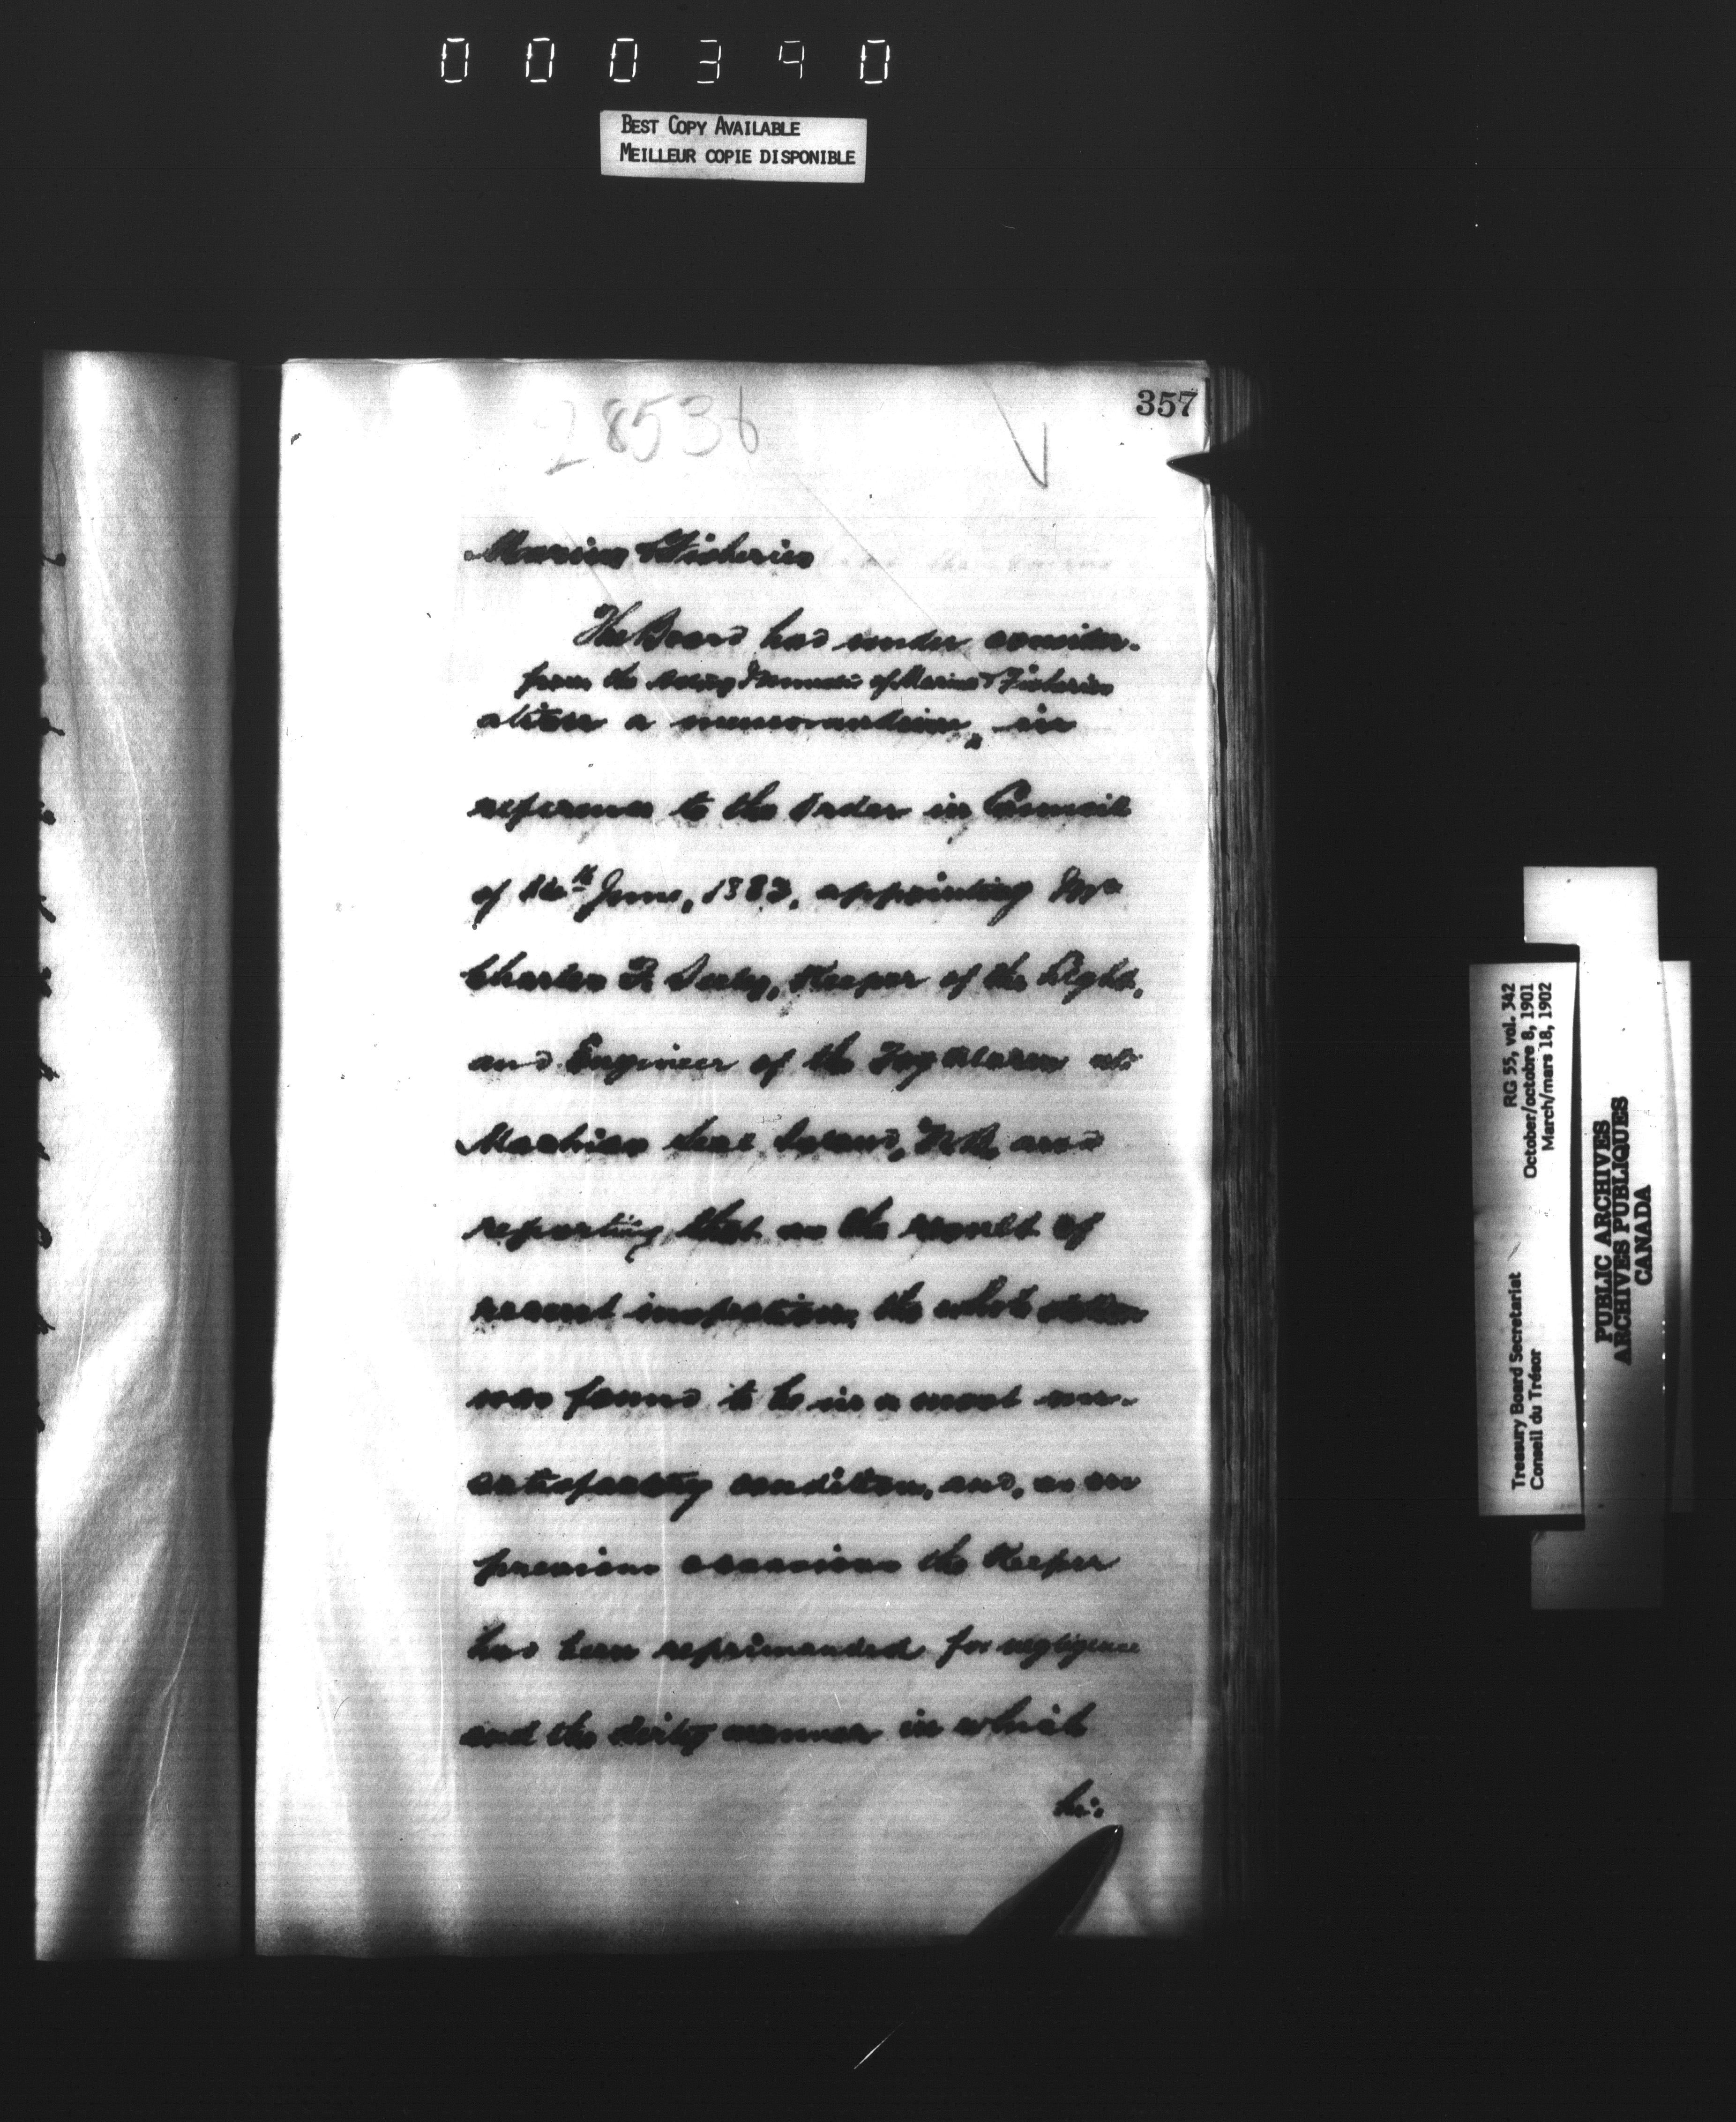 000390
BEST COPY AVAILABLE
MEILLEUR COPIE DISPONIBLE
357
28536
Marine & Fisheries
The Board had under consider-
from the Acting Minister of Marine & Fisheries
ation a memorandum, in
reference to the Order in Council
of th June, 1883, appointing Mr
Charles Seeley, Keeper of the Light,
and Engineer of the Fog Alarm at
Machias Seal Island, N.B. and
reporting that as the result of
recent inspection, the whole station
was found to be in a most un-
satisfactory condition, and, as on
previous occasions the Keeper
has been reprimanded for negligence
and the dirty manner in which
his
RG 55, vol. 342
October/octobre 8, 1901
March/mars 18, 1902
Treasury Board Secretariat
Conseil du Trésor
PUBLIC ARCHIVES
ARCHIVES PUBLIQUES
CANADA